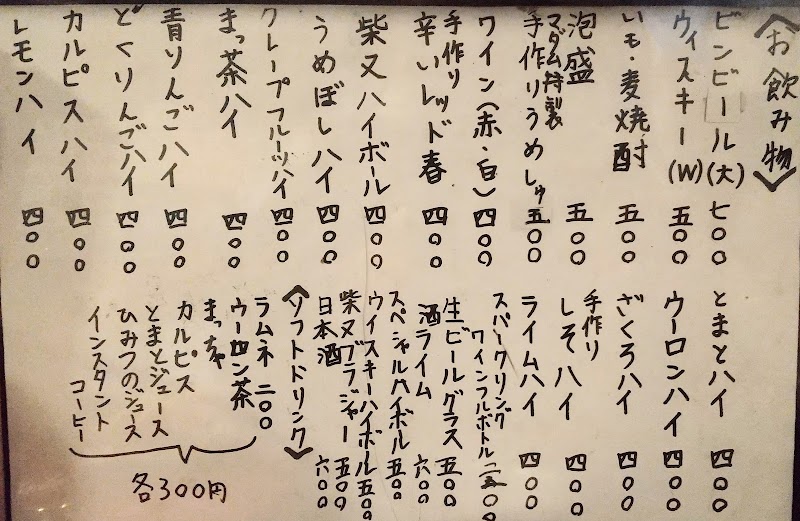 〈お飲み物〉
ビンビール(大) 七〇〇
ウィスキー(W) 五〇〇
いも・麦焼酎 五〇〇
泡盛 五〇〇
マダム特製
手作りうめしゅ 五〇〇
ワイン(赤・白) 四〇〇
手作り
辛いレッド春 四〇〇
柴又ハイボール 四〇〇
うめぼしハイ 四〇〇
グレープフルーツハイ 四〇〇
まっ茶ハイ 四〇〇
青りんごハイ 四〇〇
どくりんごハイ 四〇〇
カルピスハイ 四〇〇
レモンハイ 四〇〇
とまとハイ 四〇〇
ウーロンハイ 四〇〇
ざくろハイ 四〇〇
手作り
しそハイ 四〇〇
ライムハイ 四〇〇
スパークリング
ワインフルボトル 二五〇〇
生ビールグラス 五〇〇
酒ライム 六〇〇
スペシャルハイボール 五〇〇
ウイスキーハイボール 五〇〇
柴又ブラジャー 五〇〇
日本酒 六〇〇
〈ソフトドリンク〉
ラムネ 二〇〇
ウーロン茶
まっちゃ
カルピス
とまとジュース
ひみつのジュース
インスタント
コーヒー
各300円